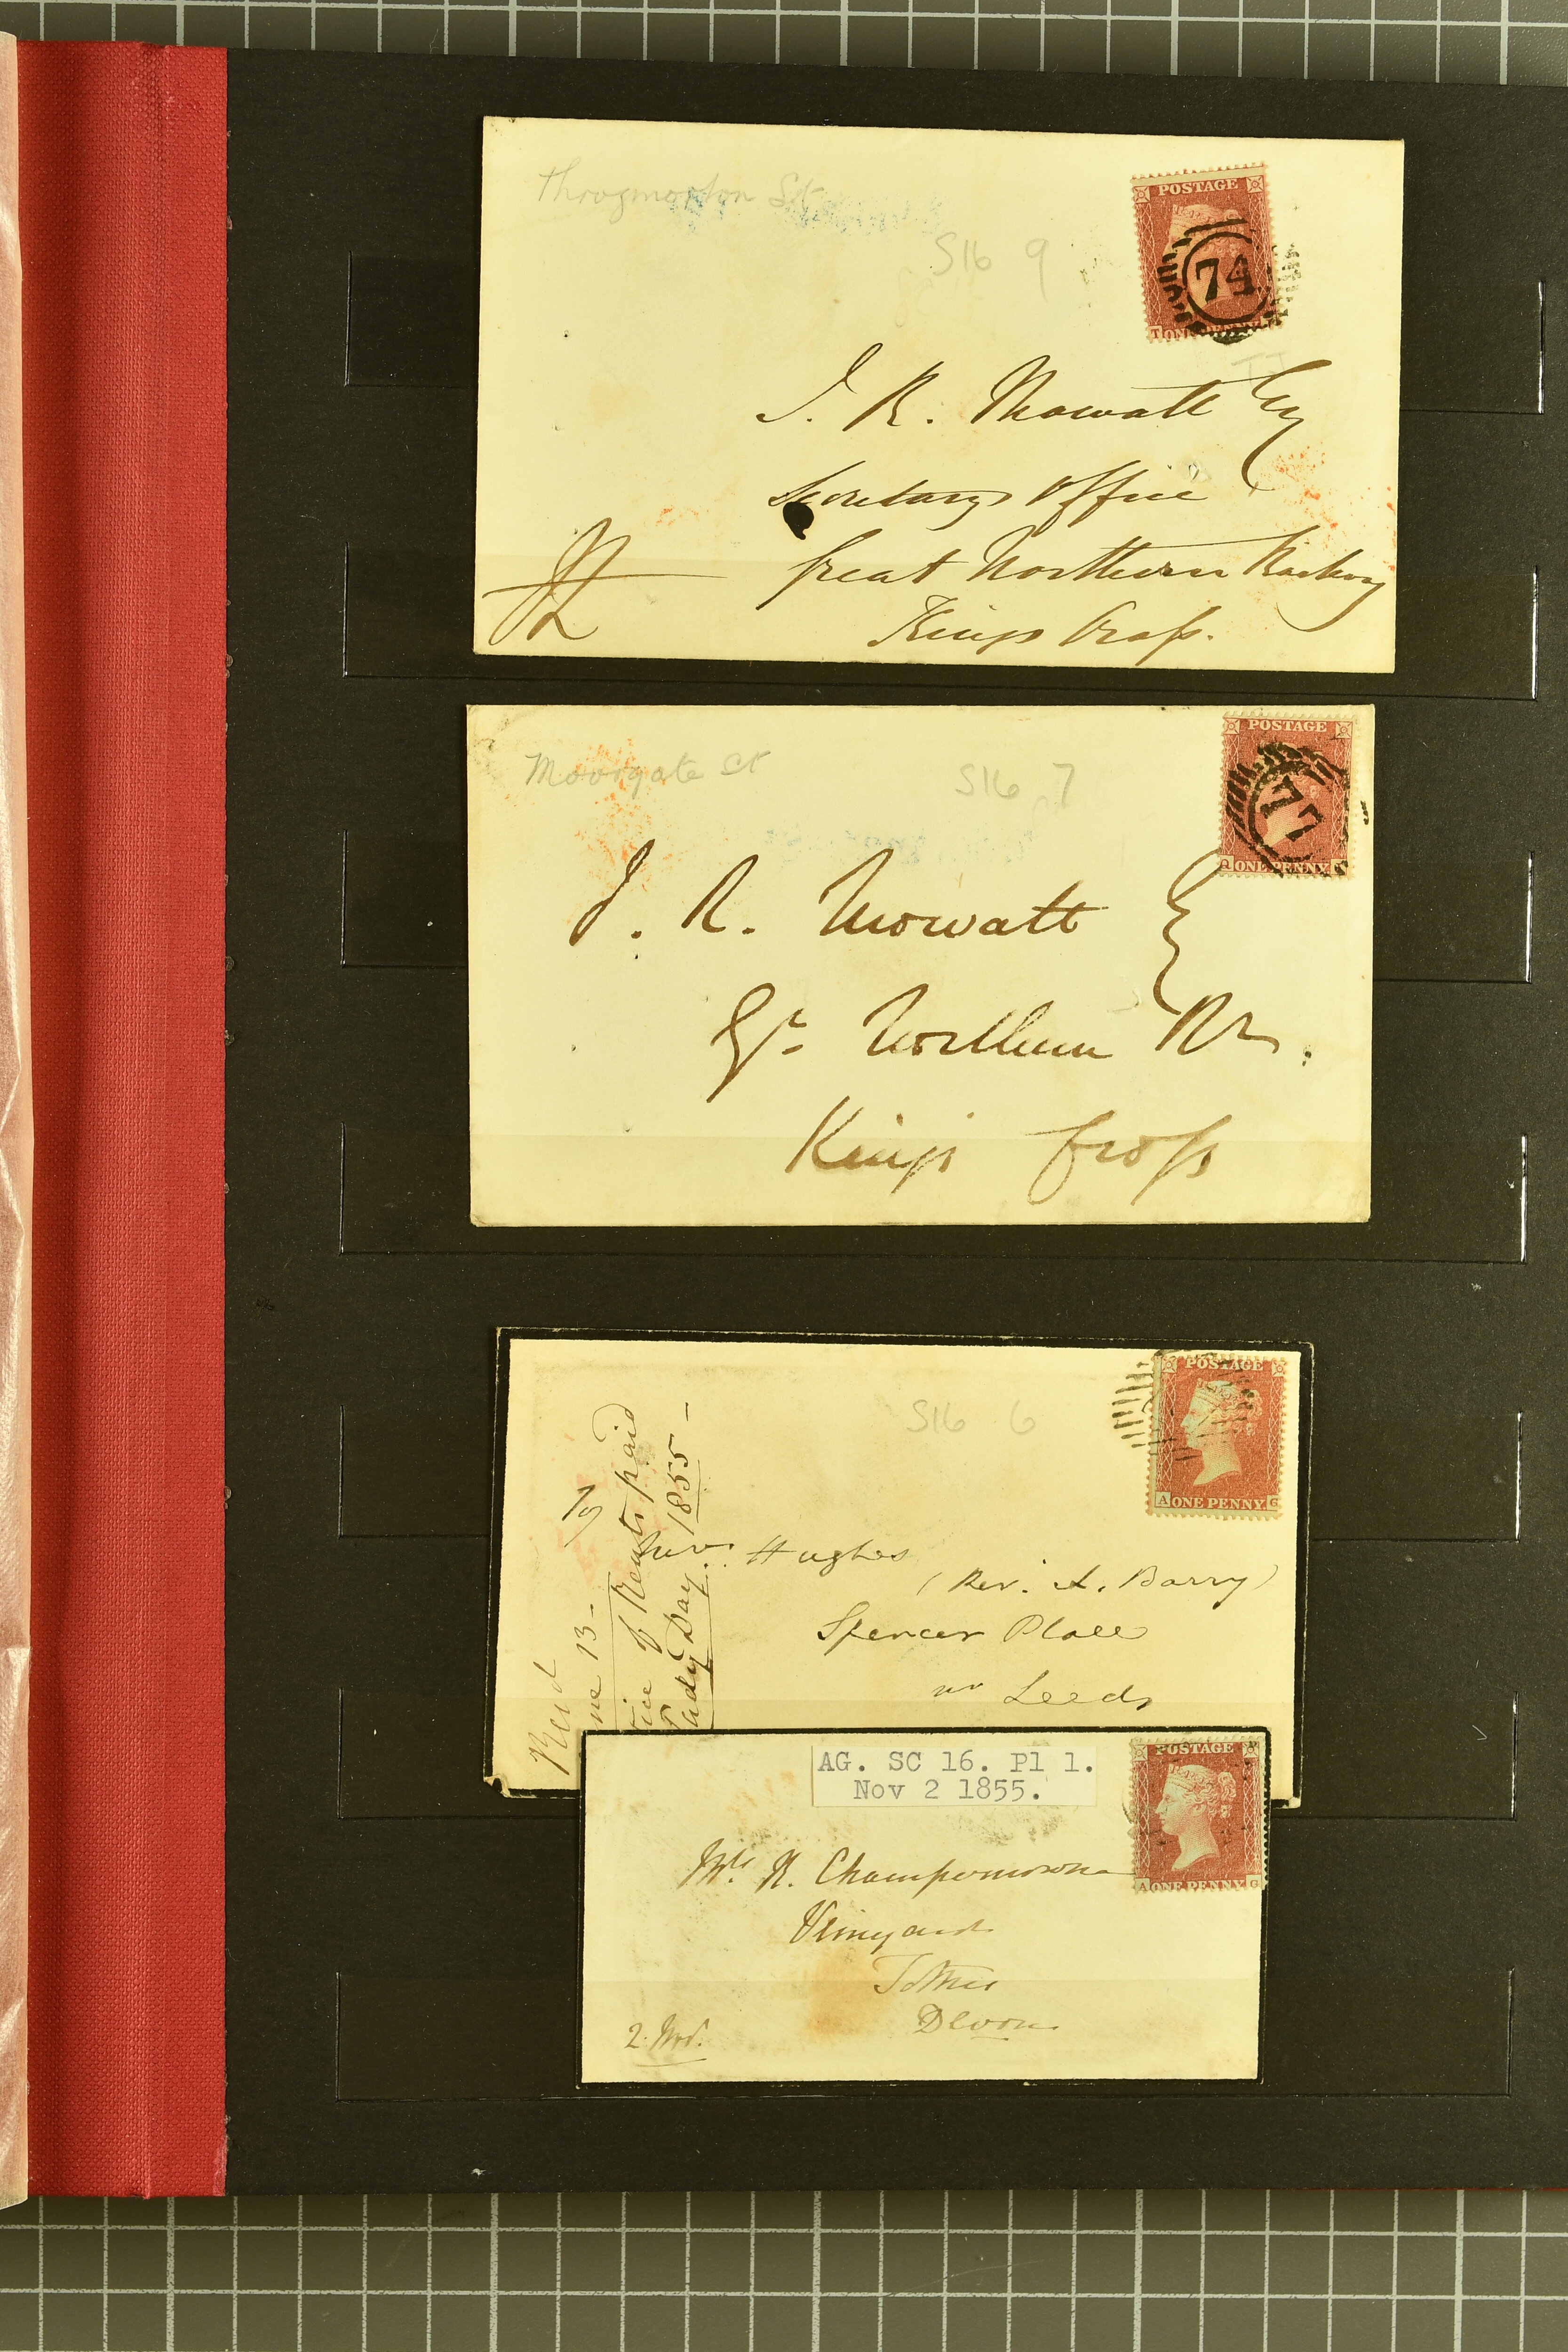 Throgmorton St
S16 9
POSTAGE
74
T ONE PENNY
J. R. Mowatt Esq
Secretarys Office
Great Northern Railway
Kings Cross.
Moorgate St
S16 7
POSTAGE
77
ONE PENNY
J. R. Mowatt E
Gt Northern Ry.
Kings Cross
S16 6
POSTAGE
A ONE PENNY G
Hughes
(Rev. A. Barry)
Spencer Place
nr Leeds
Recd
ne 13-
tice of Rents paid
Lady Day 1855-
AG. SC 16. Pl 1.
Nov 2 1855.
POSTAGE
A ONE PENNY G
R. Champernowne
Vineyard
Totnes
Devon
2. Nov.